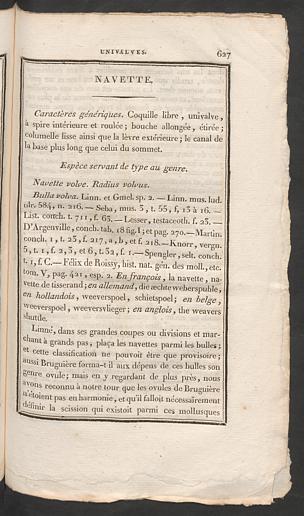 UNIVALVES. 627
NAVETTE.
Caractères génériques. Coquille libre, univalve,
à spire intérieure et roulée; bouche allongée, étirée;
columelle lisse ainsi que la lèvre extérieure; le canal de
la base plus long que celui du sommet.
Espèce servant de type au genre.
Navette volve. Radius volvus.
Bulla volva. Linn. et Gmel. sp. 2. — Linn. mus. lud.
ulr. 584, n. 216. — Seba, mus. 3, t. 55, f. 13 à 16. —
List. conch. t. 711, f. 63. — Lesser, testaceoth. f. 23. —
D'Argenville, conch. tab. 18 fig. I; et pag. 270. — Martin.
conch. 1, t. 23, f. 217, a, b, et f. 218. — Knorr, vergn.
5, t. 1, f. 2, 3, et 6, t. 32, f. 1. — Spengler, selt. conch.
t. 1, f. C. — Félix de Roissy, hist. nat. gén. des moll., etc.
tom. V, pag. 421, esp. 2. En françois, la navette, na-
vette de tisserand; en allemand, die æchte weberspuhle,
en hollandois, weeverspoel, schietspoel; en belge,
weeverspoel, weeversvlieger; en anglois, the weavers
shuttle.
Linné, dans ses grandes coupes ou divisions et mar-
chant à grands pas, plaça les navettes parmi les bulles;
et cette classification ne pouvoit être que provisoire;
aussi Bruguière forma-t-il aux dépens de ces bulles son
genre ovule; mais en y regardant de plus près, nous
avons reconnu à notre tour que les ovules de Bruguière
n'étoient pas en harmonie, et qu'il falloit nécessairement
définir la scission qui existoit parmi ces mollusques